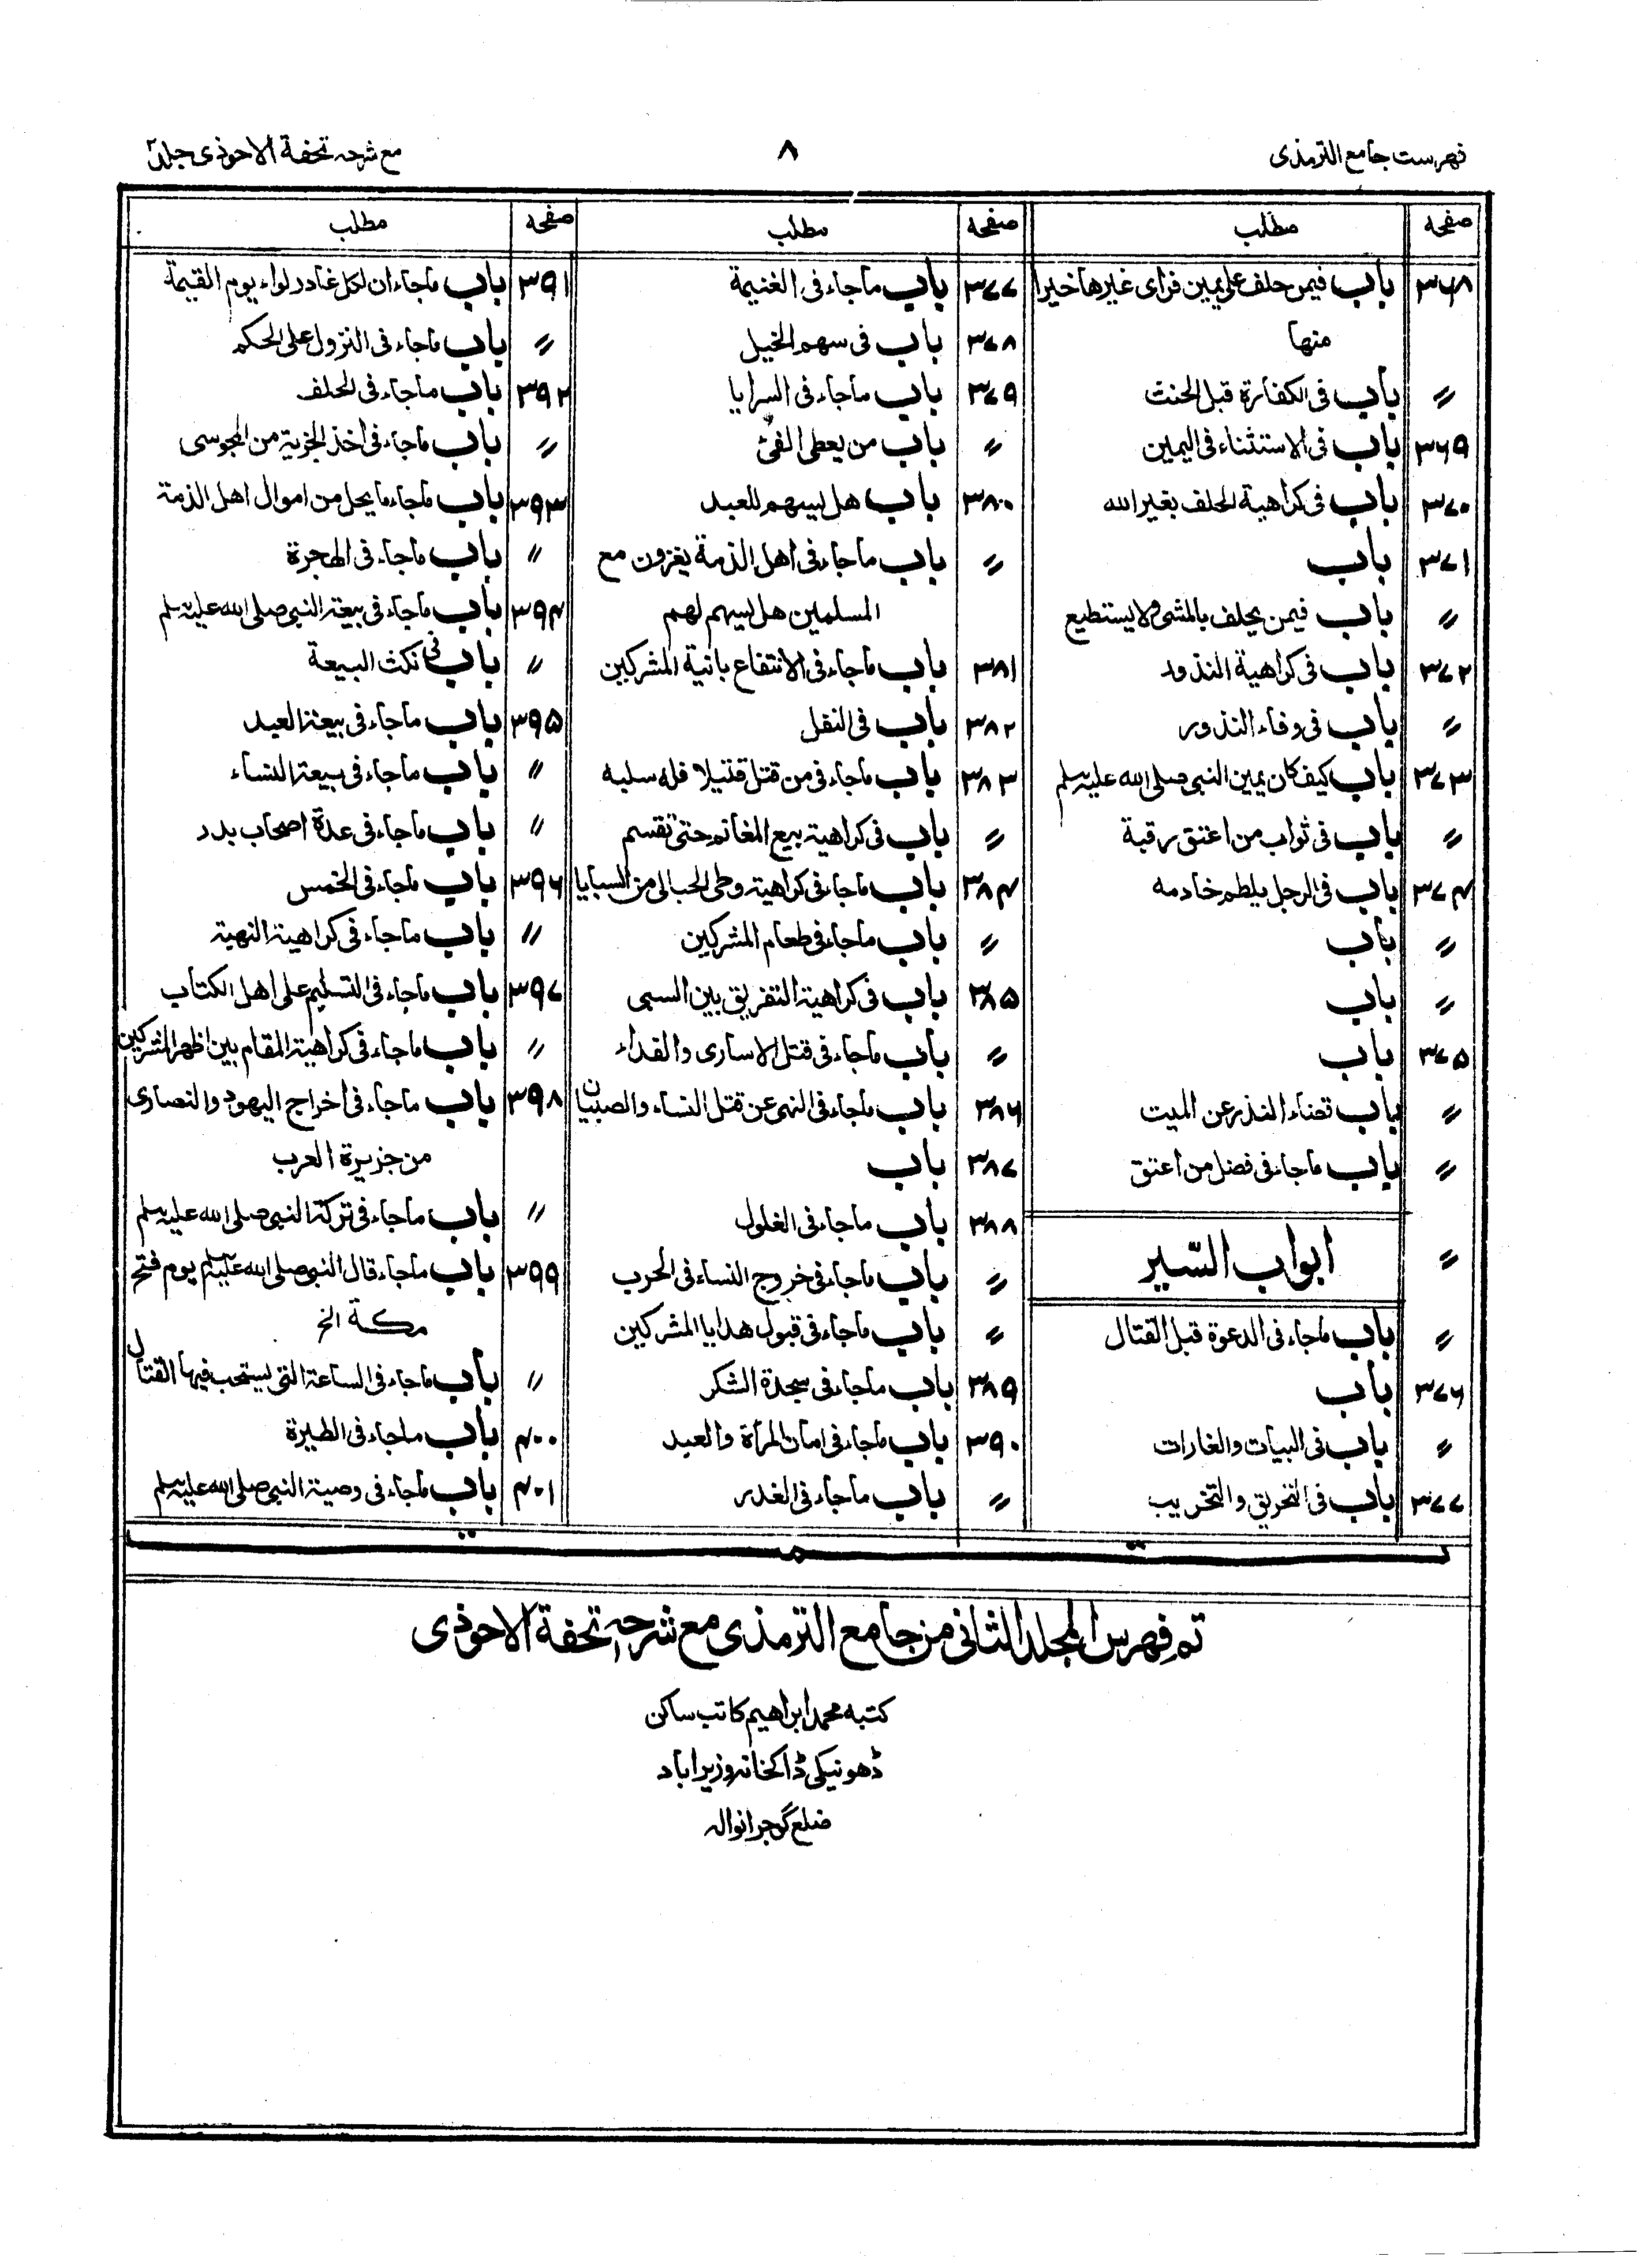 فهرست جامع الترمذی
۸
مع شرحہ تحفة الاحوذی جلد۲
صفحہ
مطلب
۳۶۸ باب فیمن حلف علی یمین فرای غیرها خیرا
منها
〃 باب فی الکفارة قبل الحنث
۳۶۹ باب فی الاستثناء فی الیمین
۳۷۰ باب فی کراهیة الحلف بغیر الله
۳۷۱ باب
〃 باب فیمن یحلف بالمشی ولا یستطیع
۳۷۲ باب فی کراهیة النذور
〃 باب فی وفاء النذور
۳۷۳ باب کیف کان یمین النبی صلی الله علیه وسلم
〃 باب فی ثواب من اعتق رقبة
۳۷۴ باب فی الرجل یلطم خادمه
〃 باب
〃 باب
۳۷۵ باب
〃 باب قضاء النذر عن المیت
〃 باب ماجاء فی فضل من اعتق
〃 ابواب السّیر
〃 باب ماجاء فی الدعوة قبل القتال
۳۷۶ باب
〃 باب فی البیات والغارات
۳۷۷ باب فی التحریق والتخریب
صفحہ
مطلب
۳۷۷ باب ماجاء فی الغنیمة
۳۷۸ باب فی سهم الخیل
۳۷۹ باب ماجاء فی السرایا
〃 باب من یعطی الفئ
۳۸۰ باب هل یسهم للعبد
〃 باب ماجاء فی اهل الذمة یغزون مع
المسلمین هل یسهم لهم
۳۸۱ باب ماجاء فی الانتفاع بانیة المشرکین
۳۸۲ باب فی النفل
۳۸۳ باب ماجاء فی من قتل قتیلا فله سلبه
〃 باب فی کراهیة بیع المغانم حتی تقسم
۳۸۴ باب ماجاء فی کراهیة وطی الحبالی من السبایا
〃 باب ماجاء فی طعام المشرکین
۳۸۵ باب فی کراهیة التفریق بین السبی
〃 باب ماجاء فی قتل الاساری والفداء
۳۸۶ باب ماجاء فی النهی عن قتل النساء والصبیان
۳۸۷ باب
۳۸۸ باب ماجاء فی الغلول
〃 باب ماجاء فی خروج النساء فی الحرب
〃 باب ماجاء فی قبول هدایا المشرکین
۳۸۹ باب ماجاء فی سجدة الشکر
۳۹۰ باب ماجاء فی امان المرأة والعبد
〃 باب ماجاء فی الغدر
صفحہ
مطلب
۳۹۱ باب ماجاء ان لکل غادر لواء یوم القیمة
〃 باب ماجاء فی النزول علی الحکم
۳۹۲ باب ماجاء فی الحلف
〃 باب ماجاء فی اخذ الجزیة من المجوسی
۳۹۳ باب ماجاء ما یحل من اموال اهل الذمة
〃 باب ماجاء فی الهجرة
۳۹۴ باب ماجاء فی بیعة النبی صلی الله علیه وسلم
〃 باب فی نکث البیعة
۳۹۵ باب ماجاء فی بیعة العبد
〃 باب ماجاء فی بیعة النساء
〃 باب ماجاء فی عدة اصحاب بدر
۳۹۶ باب ماجاء فی الخمس
〃 باب ماجاء فی کراهیة النهبة
۳۹۷ باب ماجاء فی التسلیم علی اهل الکتاب
〃 باب ماجاء فی کراهیة المقام بین اظهر المشرکین
۳۹۸ باب ماجاء فی اخراج الیهود والنصاری
من جزیرة العرب
〃 باب ماجاء فی ترکة النبی صلی الله علیه وسلم
۳۹۹ باب ماجاء قال النبی صلی الله علیه وسلم یوم فتح
مکة الخ
〃 باب ماجاء فی الساعة التی یستحب فیها القتال
۴۰۰ باب ماجاء فی الطیرة
۴۰۱ باب ماجاء فی وصیة النبی صلی الله علیه وسلم
تمت
تم فهرس المجلد الثانی من جامع الترمذی مع شرحه تحفة الاحوذی
کتبه محمد ابراهیم کاتب ساکن
ڈھونیکی ڈاکخانہ وزیراباد
ضلع گوجرانوالہ